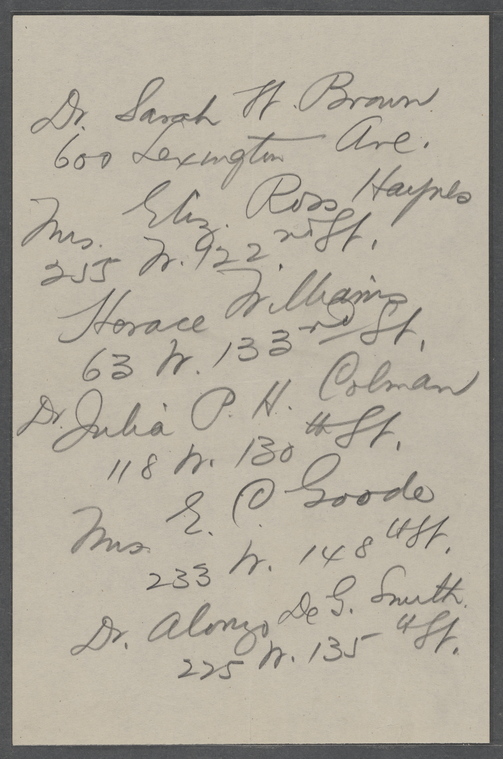 Dr. Sarah W. Brown
600 Lexington Ave.
Mrs. Eliz. Ross Haynes
255 W. 122nd St.
Horace Williams
63 W. 133rd St.
Dr. Julia P. H. Colman
118 W. 130th St.
Mrs. E. C. Goode
233 W. 148th St.
Dr. Alonzo De G. Smith.
225 W. 135th St.